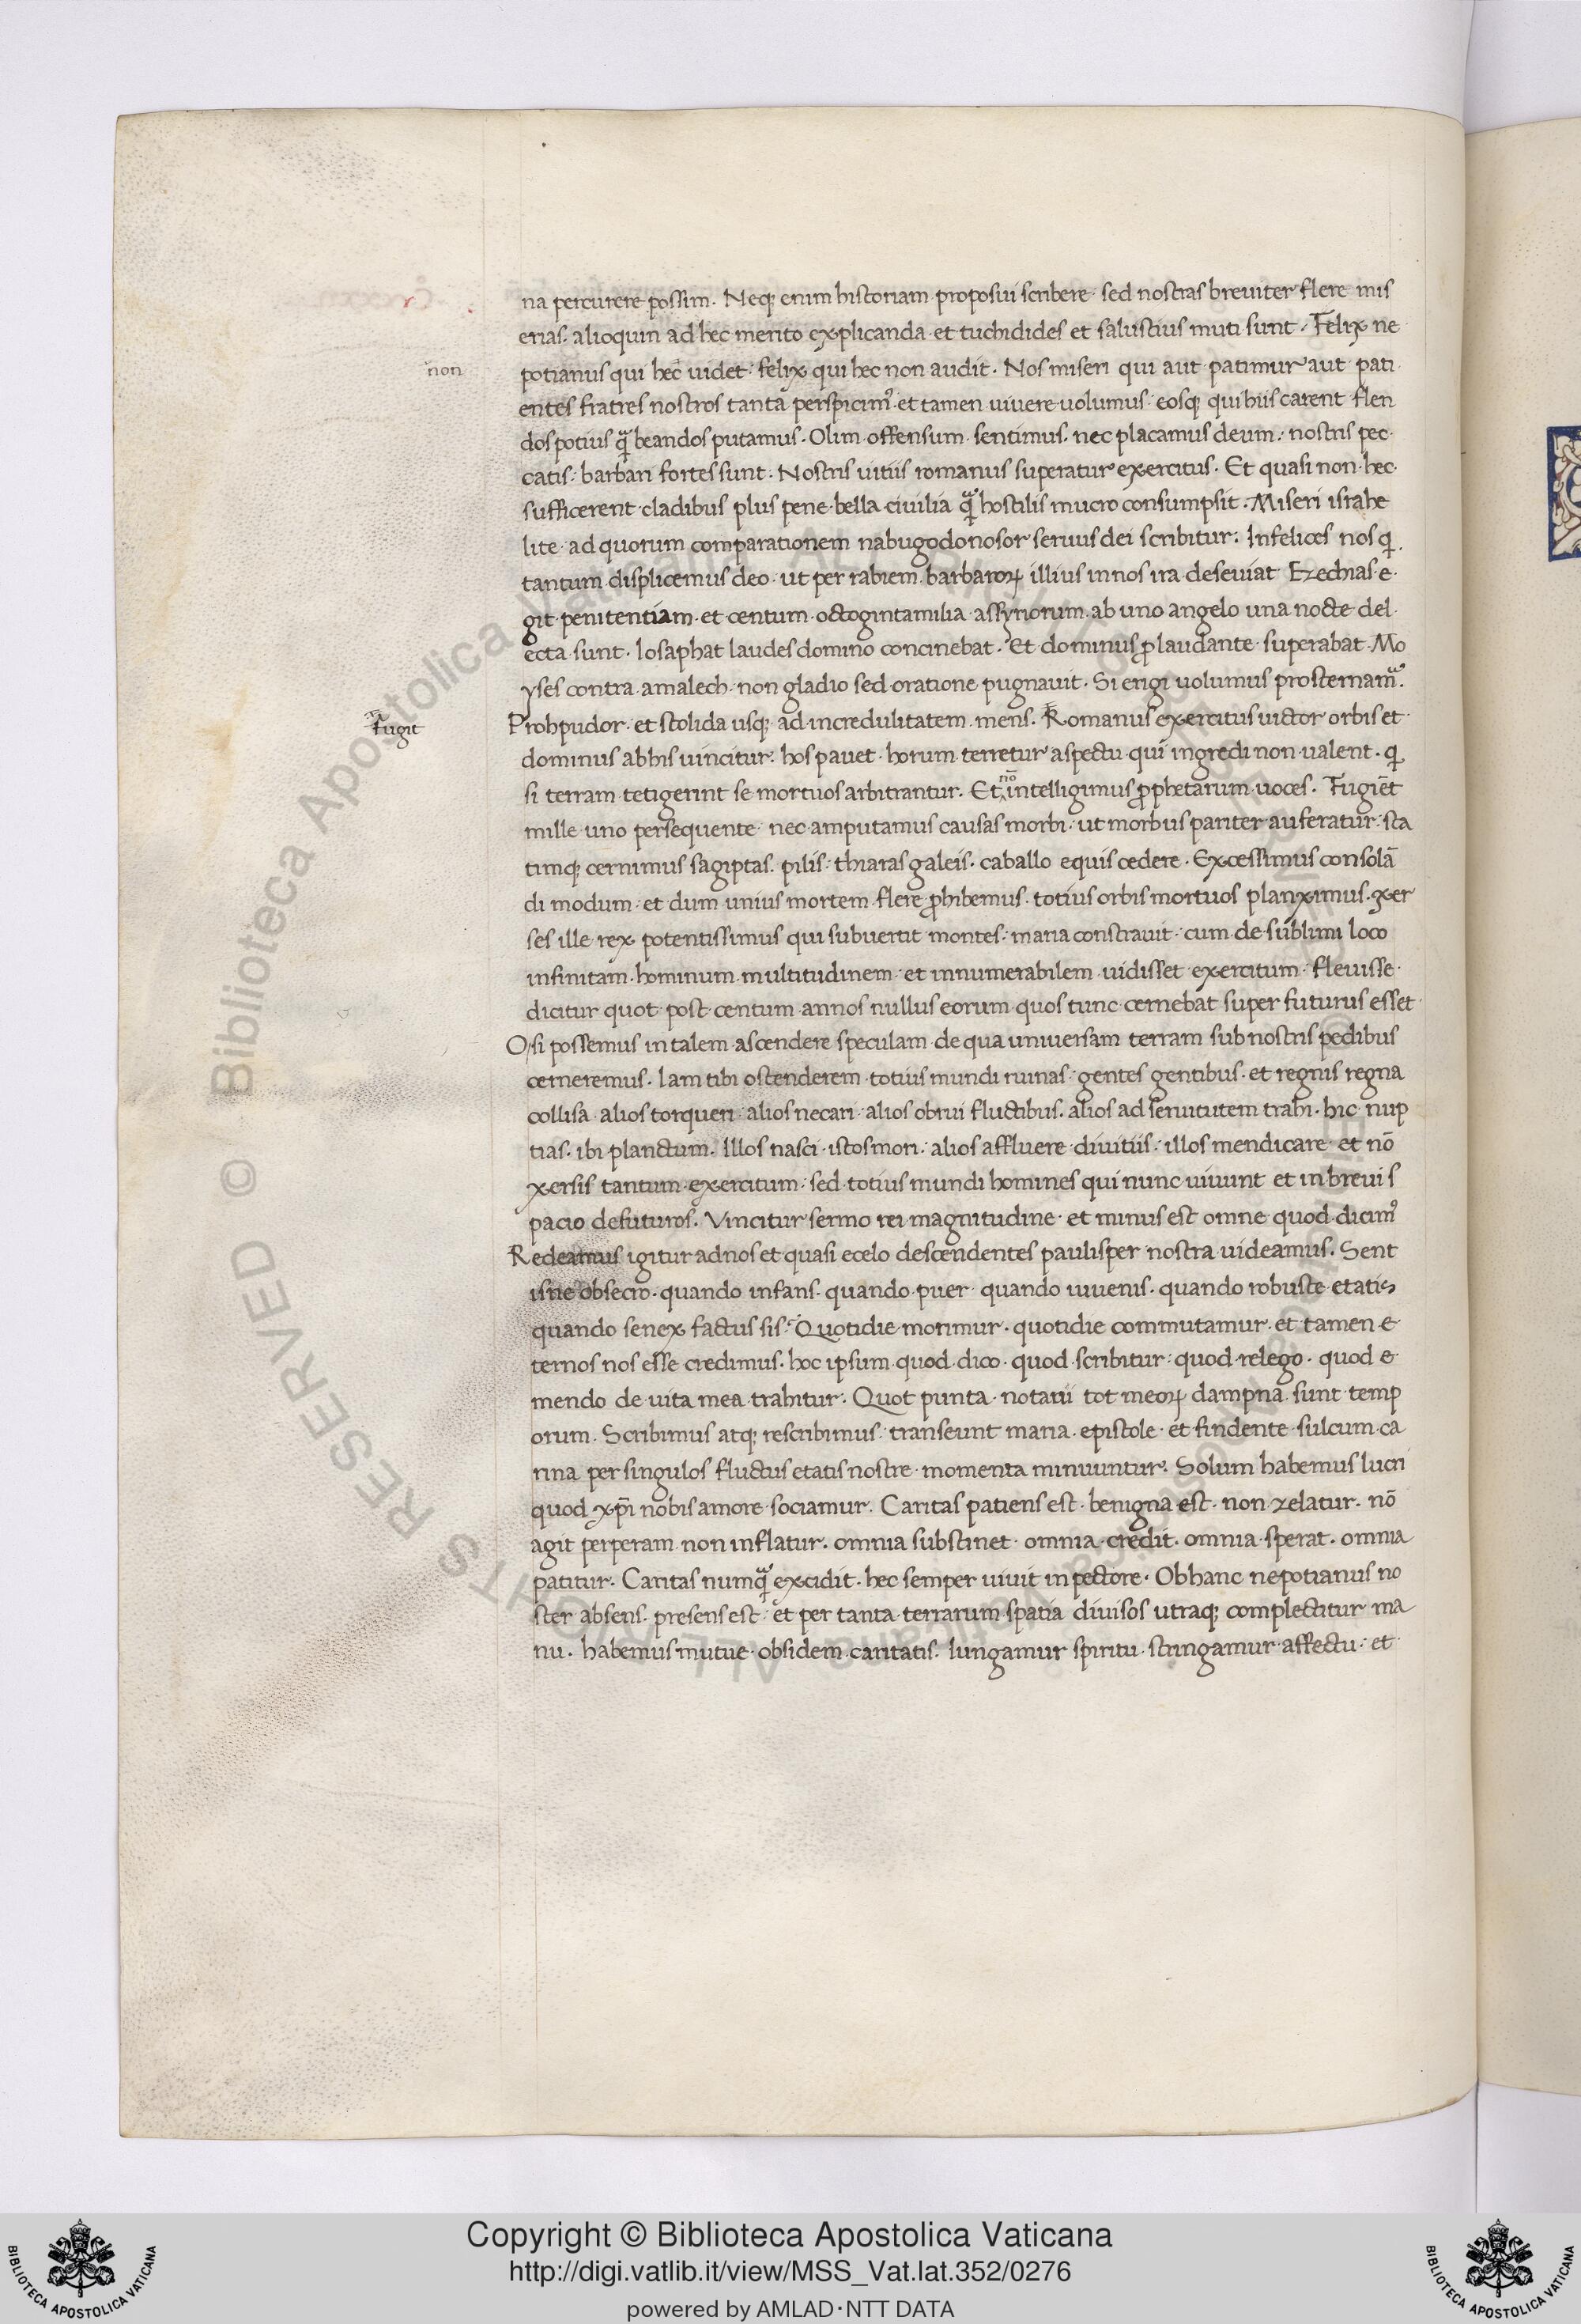 na percurere possim. Neq; enim historiam proposui scribere· sed nostras breuiter flere mis
erias. alioquin ad hec merito explicanda et tuchidides et salustius muti sunt. Felix ne
non
potianus qui hec uidet: felix qui hec non audit. Nos miseri qui aut patimur aut pati
entes fratres nostros tanta perspicimꝰ. et tamen uiuere uolumus: eosq; qui hiis carent flen
dos potius q̃ beandos putamus. Olim offensum sentimus. nec placamus deum: nostris pec
catis: barbari fortes sunt. Nostris uitiis romanus superatur exercitus. Et quasi non hec
sufficerent cladibus plus pene bella ciuilia q̃ hostilis mucro consumpsit. Miseri israhe
lite ad quorum comparationem nabugodonosor seruus dei scribitur. Infelices nos q
tantum displicemus deo. ut per rabiem barbaroꝝ illius in nos ira deseuiat Ezechias e
git penitentiam. et centum octogintamilia assyriorum ab uno angelo una nocte del
ecta sunt. Iosaphat laudes domino concinebat. Et dominus ꝓ laudante superabat. Mo
yses contra amalech. non gladio sed oratione pugnauit. Si erigi uolumus prosternam̃.
Fugit
Prohpudor et stolida usq; ad incredulitatem mens. Romanus exercitus uictor orbis et
dominus abhis uincitur. hos pauet· horum terretur aspectu qui ingredi non ualent. q
si terram tetigerint se mortuos arbitrantur. Et nõ intelligimus ꝓphetarum uoces. Fugiẽt
mille uno persequente nec amputamus causas morbi. ut morbus pariter auferatur: sta
timq; cernimus sagiptas. pilis: thiaras galeis. caballo equis cedere. Excessimus consolã
di modum: et dum unius mortem flere ꝓhibemus. totius orbis mortuos planximus. xer
ses ille rex potentissimus qui subuertit montes: maria constrauit: cum de sublimi loco
infinitam hominum multitudinem et innumerabilem uidisset exercitum: fleuisse
dicitur quot post centum annos nullus eorum quos tunc cernebat super futurus esset
O si possemus in talem ascendere speculam de qua uniuersam terram sub nostris pedibus
cerneremus. Iam tibi ostenderem totius mundi ruinas: gentes gentibus. et regnis regna
collisa alios torqueri: alios necari alios obrui fluctibus. alios ad seruitutem trahi. hic nup
tias. ibi planctum. Illos nasci istos mori: alios affluere diuitiis: illos mendicare et nõ
xersis tantum exercitum: sed totius mundi homines qui nunc uiuunt et in breui s
pacio defuturos. Vincitur sermo rei magnitudine et minus est omne quod dicimꝰ
Redeamus igitur ad nos et quasi ecelo descendentes paulisper nostra uideamus. Sent
isne obsecro. quando infans. quando puer quando iuuenis. quando robuste etatis
quando senex factus sis? Quotidie morimur. quotidie commutamur et tamen e
ternos nos esse credimus. hoc ipsum quod dico. quod scribitur: quod relego. quod e
mendo de uita mea trahitur. Quot punta notarii tot meoꝝ dampna sunt temp
orum. Scribimus atq; rescribimus: transeunt maria. epistole et findente sulcum ca
rina per singulos fluctus etatis nostre momenta minuuntur. Solum habemus lucri
quod xp̃i nobis amore sociamur. Caritas patiens est. benigna est. non zelatur. nõ
agit perperam non inflatur. omnia substinet omnia credit. omnia sperat. omnia
patitur. Caritas numq̃ excidit. hec semper uiuit in pectore. Obhanc nepotianus no
ster absens presens est: et per tanta terrarum spatia diuisos utraq; complectitur ma
nu. habemus mutue obsidem caritatis. Iungamur spiritu stringamur affectu: et
Copyright © Biblioteca Apostolica Vaticana
http://digi.vatlib.it/view/MSS_Vat.lat.352/0276
powered by AMLAD·NTT DATA
BIBLIOTECA APOSTOLICA VATICANA
BIBLIOTECA APOSTOLICA VATICANA